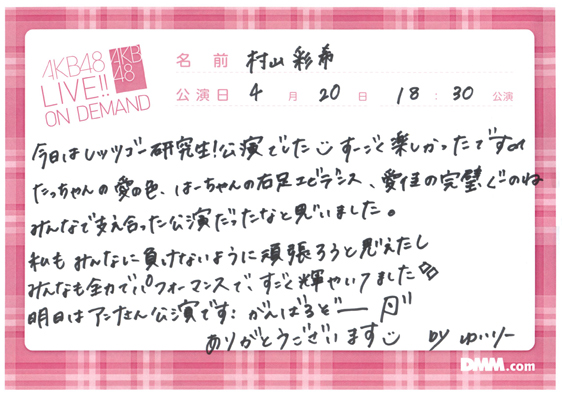 AKB48
LIVE!!
ON DEMAND
AKB
48
名前 村山彩希
公演日 4月20日 18:30公演
今日はレッツゴー研究生!公演でした すーごく楽しかったです
たっちゃんの愛の色、はーちゃんの右足エビデンス、愛佳の完璧ぐーのね
みんなで支え合った公演だったなと思いました。
私もみんなに負けないように頑張ろうと思えたし
みんなも全力でパフォーマンスで、すごく輝やいてました
明日はアンナさん公演です: がんばるぞー
ありがとうございます by ゆいりー
DMM.com